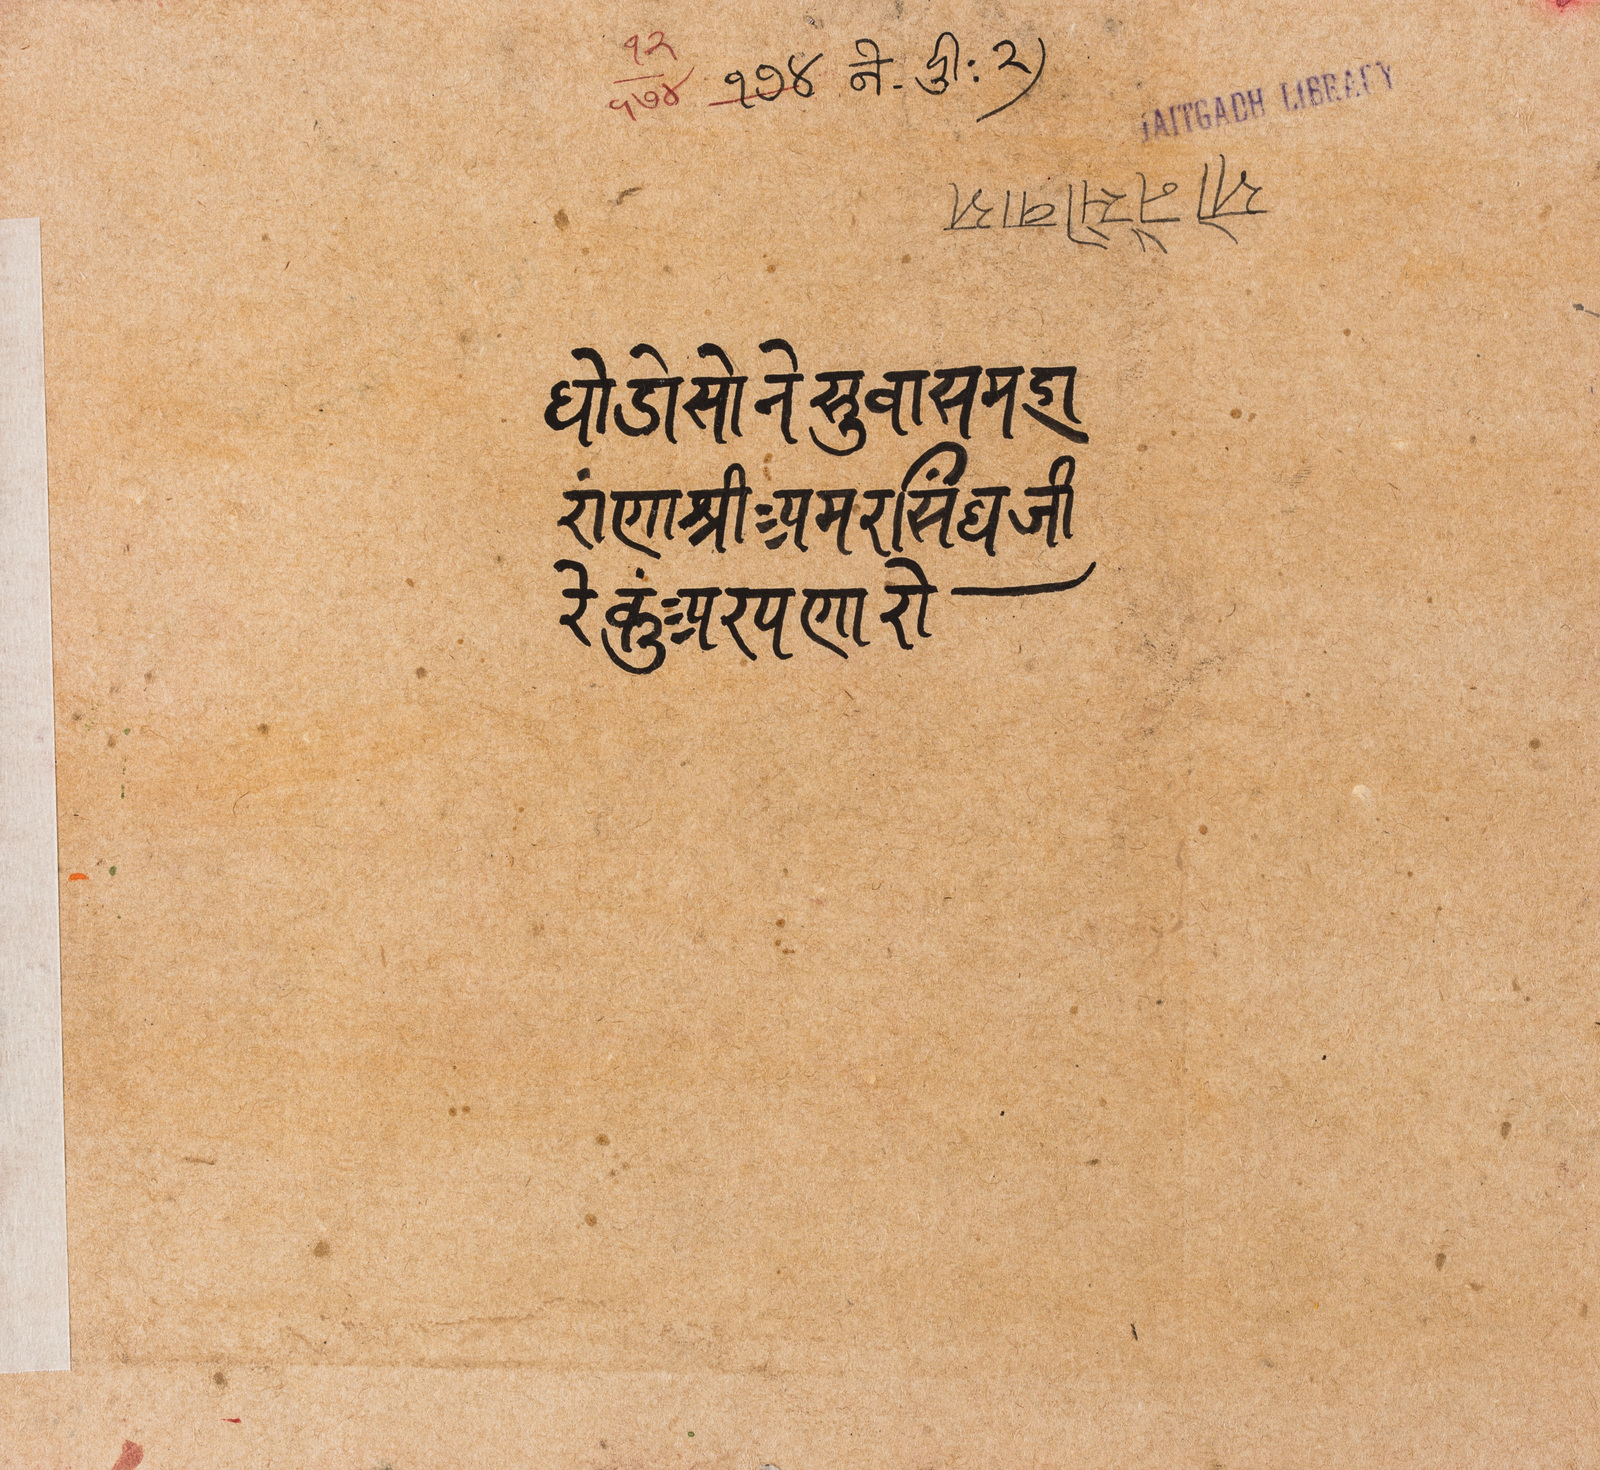 १२
१७४
१७४ ने. डी: २)
AITGADH LIBRARY
घोडो सोने सुवास महा
रांणा श्री अमरसिंघजी
रे कुंअरपणा रो